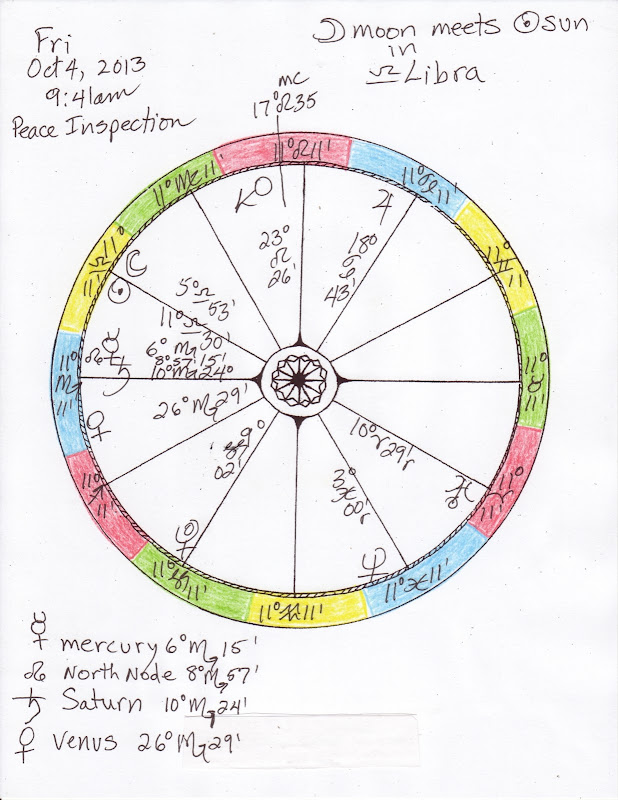 Fri
Oct 4, 2013
9:41am
Peace Inspection
☽ moon meets ☉ sun
in
♎ Libra
mc
17°♌35
11°♌11'
11°♋11'
11°♊11'
11°♉11'
11°♈11'
11°♓11'
11°♒11'
11°♑11'
11°♐11'
11°♏11'
11°♎11'
11°♍11'
23°
♌
26'
18°
♋
43'
5°♎
53'
11°♎
30'
6°♏
15'
8°57'
10°♏24°
26°♏29'
9°
02'
3°
♓
00'℞
10°♈29'℞
☿ mercury 6°♏15'
☊ North Node 8°♏57'
♄ Saturn 10°♏24'
♀ Venus 26°♏29'